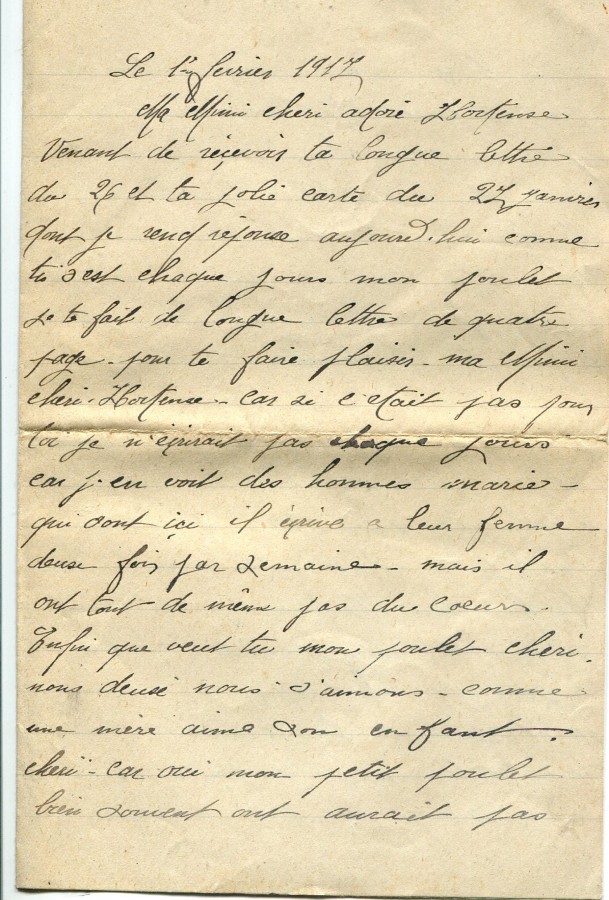 Le 1er fevrier 1917
Ma Mimi cheri adoré Hortense
Venant de reçevoir ta longue lettre
du 26 et ta jolie carte du 27 janvier
dont je rend réponse aujourd'hui comme
tu s'est chaque jours mon poulet
Je te fait de longue lettre de quatre
page pour te faire plaisir - ma Mimi
cheri - Hortense - car si c'etait pas pour
toi je n'éçrirait pas chaque jours
car j'en voit des hommes marie -
qui sont içi il éçrive a leur femme
deuse fois par semaine - mais il
ont tout de même pas du coeur.
Enfin que veut tu mon poulet cheri.
nous deuse nous s'aimons - comme
une mère aime son enfant.
cheri - car oui mon petit poulet
bien souvent ont aurait pas